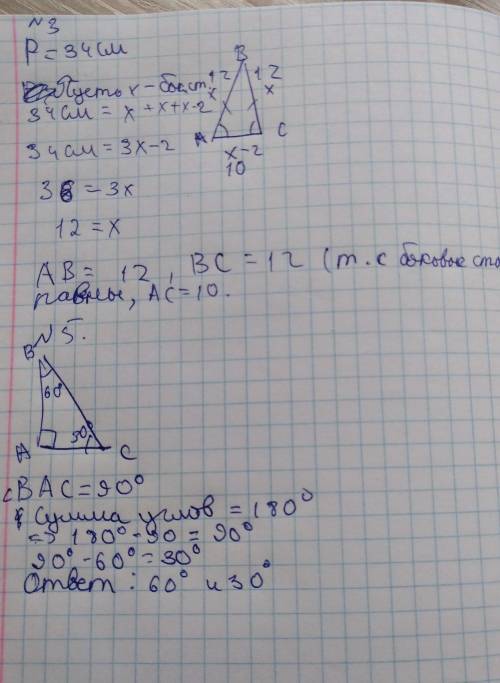 N3
P = 34 см
Пусть x - бок.ст.
34 см = x + x + x - 2
34 см = 3x - 2
36 = 3x
12 = x
B
12 12
x x
A C
x - 2
10
AB = 12, BC = 12 (т.с боковые сто
равны, AC = 10.
N5.
B
60°
A 30° C
∠BAC = 90°
Сумма углов = 180°
=> 180° - 90 = 90°
90° - 60° = 30°
Ответ: 60° и 30°